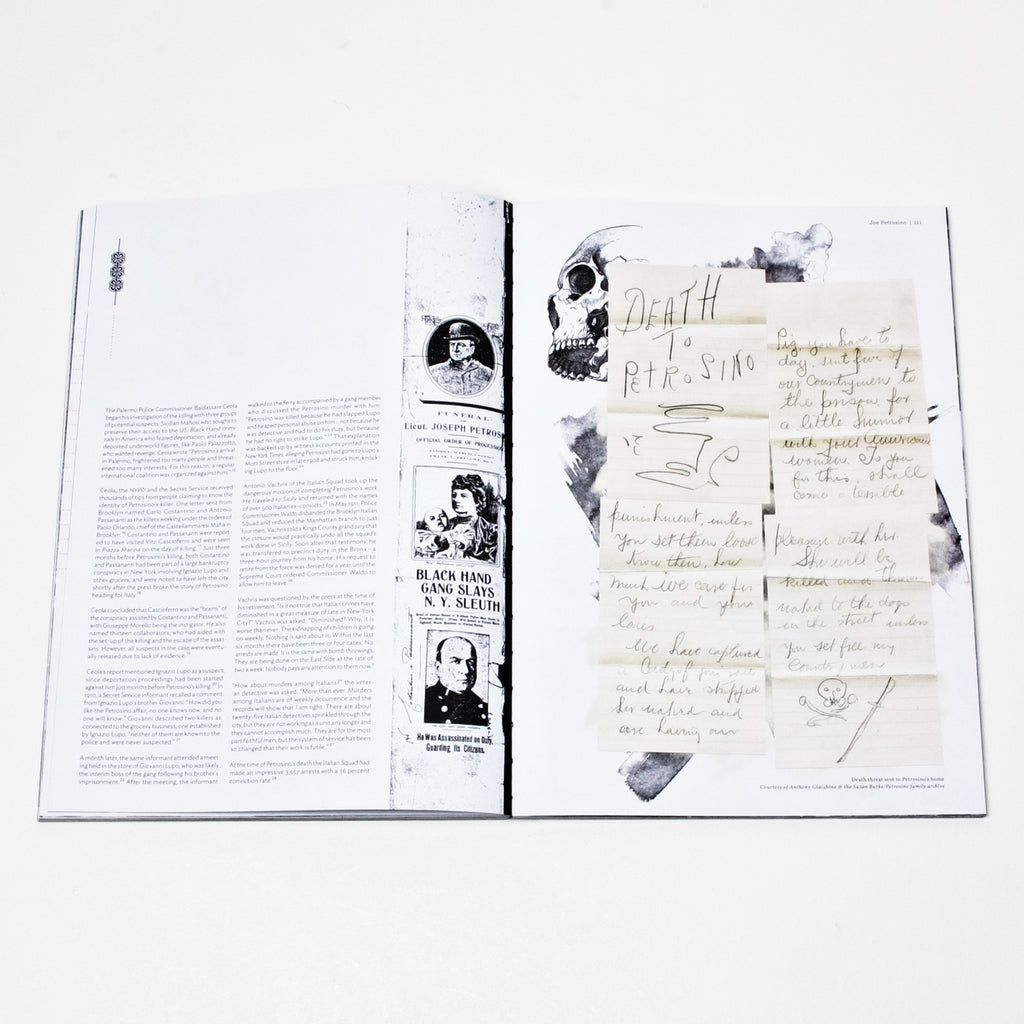 The Palermo Police Commissioner, Baldassare Ceola
began his investigation of the killing with three groups
of potential suspects: Sicilian Mafiosi who sought to
preserve their access to the US, Black Hand crimi-
nals in America who feared deportation; and already
deported underworld figures, like Paolo Palazzotto,
who wanted revenge. Ceola wrote "Petrosino's arrival
in Palermo, frightened too many people and threat-
ened too many interests. For this reason, a regular
international coalition was organized against him."
Ceola, the NYPD and the Secret Service received
thousands of tips from people claiming to know the
identity of Petrosino's killer. One letter sent from
Brooklyn named Carlo Costantino and Antonio
Passananti as the killers working under the orders of
Paolo Orlando, chief of the Castellammarese Mafia in
Brooklyn. Costantino and Passananti were report-
ed to have visited Vito Cascioferro and were seen
in Piazza Marina on the day of killing. Just three
months before Petrosino's killing, both Costantino
and Passananti had been part of a large bankruptcy
conspiracy in New York involving Ignazio Lupo and
other grocers, and were noted to have left the city
shortly after the press broke the story of Petrosino
heading for Italy.
Ceola concluded that Cascioferro was the "brains" of
the conspiracy assisted by Costantino and Passananti,
with Giuseppe Morello being the instigator. He also
named thirteen collaborators, who had aided with
the set-up of the killing and the escape of the assas-
sins. However, all suspects in the case were eventu-
ally released due to lack of evidence.
Ceola's report mentioned Ignazio Lupo as a suspect,
since deportation proceedings had been started
against him just months before Petrosino's killing. In
1910, a Secret Service informant recalled a comment
from Ignazio Lupo's brother Giovanni: "How did you
like the Petrosino affair, no one knows now, and no
one will know." Giovanni described two killers as
connected to the grocery business, one established
by Ignazio Lupo, "neither of them are known to the
police and were never suspected."
A month later, the same informant attended a meet-
ing held in the store of Giovanni Lupo, who was likely
the interim boss of the gang following his brother's
imprisonment. After the meeting, the informant
walked to the ferry accompanied by a gang member
who discussed the Petrosino murder with him;
"Petrosino was killed because he had slapped Lupo
and heaped personal abuse on him... not because he
was detective and had to do his duty, but because
he had no right to strike Lupo." That explanation
was backed up by witness accounts printed in the
New York Times, alleging Petrosino had gone to Lupo's
Mott Street store in late 1908 and struck him, knock-
ing Lupo to the floor.
Antonio Vachris of the Italian Squad took up the
dangerous mission of completing Petrosino's work.
He traveled to Sicily and returned with the names
of over 500 Italian ex-convicts. In May 1911, Police
Commissioner Waldo disbanded the Brooklyn Italian
Squad and reduced the Manhattan branch to just
four men. Vachris told a Kings County grand jury that
the closure would practically undo all the squad's
work done in Sicily. Soon after that testimony, he
was transferred to precinct duty in the Bronx - a
three-hour journey from his home. His request to
retire from the force was denied for a year until the
Supreme Court ordered Commissioner Waldo to
allow him to leave.
Vachris was questioned by the press at the time of
his retirement. "Is it not true that Italian crimes have
diminished in a great measure of late in New York
City?" Vachris was asked. "Diminished? Why, it is
worse than ever. The kidnapping of children is going
on weekly. Nothing is said about it. Within the last
six months there have been three or four cases. No
arrests are made. It is the same with bomb throwings.
They are being done on the East Side at the rate of
two a week. Nobody pays any attention to them now."
"How about murders among Italians?" the veter-
an detective was asked. "More than ever. Murders
among Italians are of weekly occurrence and the
records will show that I am right. There are about
twenty-five Italian detectives sprinkled through the
city, but they are not working as a unit any longer and
they cannot accomplish much. They are for the most
part faithful men, but the system of service has been
so changed that their work is futile."
At the time of Petrosino's death the Italian Squad had
made an impressive 3,557 arrests with a 36 percent
conviction rate.
FUNERAL
Lieut. JOSEPH PETROS
OFFICIAL ORDER OF PROCESS
BLACK HAND
GANG SLAYS
N. Y. SLEUTH
He Was Assassinated on Duty,
Guarding Its Citizens.
Joe Petrosino | 111
DEATH
TO
PETROSINO
Pig you have to
day, sent five of
our Countrymen to
the prison, for
a little humor
with your American
women. To you
for this, shall
come a terrible
punishment, unless
you set them loose
Know then, how
much we care for
you and your
laws
We have captured
and have stripped
her naked and
are having our
pleasure with her.
She will be
killed and thrown
naked to the dogs
in the street unless
you set free my
Country men
Death threat sent to Petrosino's home
Courtesy of Anthony Giacchino & the Susan Burke/Petrosino family archive